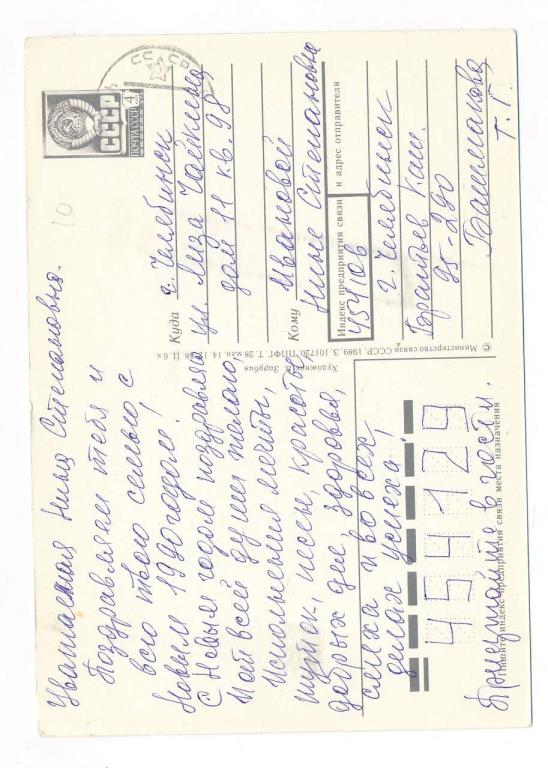 Уважаемая Нина Степановна.
Поздравляем тебя и
всю твою семью с
Новым 1990 годом!
С Новым годом поздравляем
Той всей души желаю,
Исполнения мечты,
шуток, песен, красоты,
добрых дне, здоровья,
смеха и во всех
делах успеха!
Приезжайте в гости.
СССР
СССР
ПОЧТА СССР
4
10
Куда г. Челябинск
ул. Лиза Чайкина
дом 11 кв. 98
Кому Ивановой
Нине Степановна
Индекс предприятия связи и адрес отправителя
454106 г. Челябинск
95-290
Башмакова
Т. Г.
© Министерство связи СССР, 1989. З. 101720. ППФГ. Т. 28 млн. 14.12.88. П. 6 к.
Художник В. Зарубин
454129
Пишите индекс предприятия связи места назначения